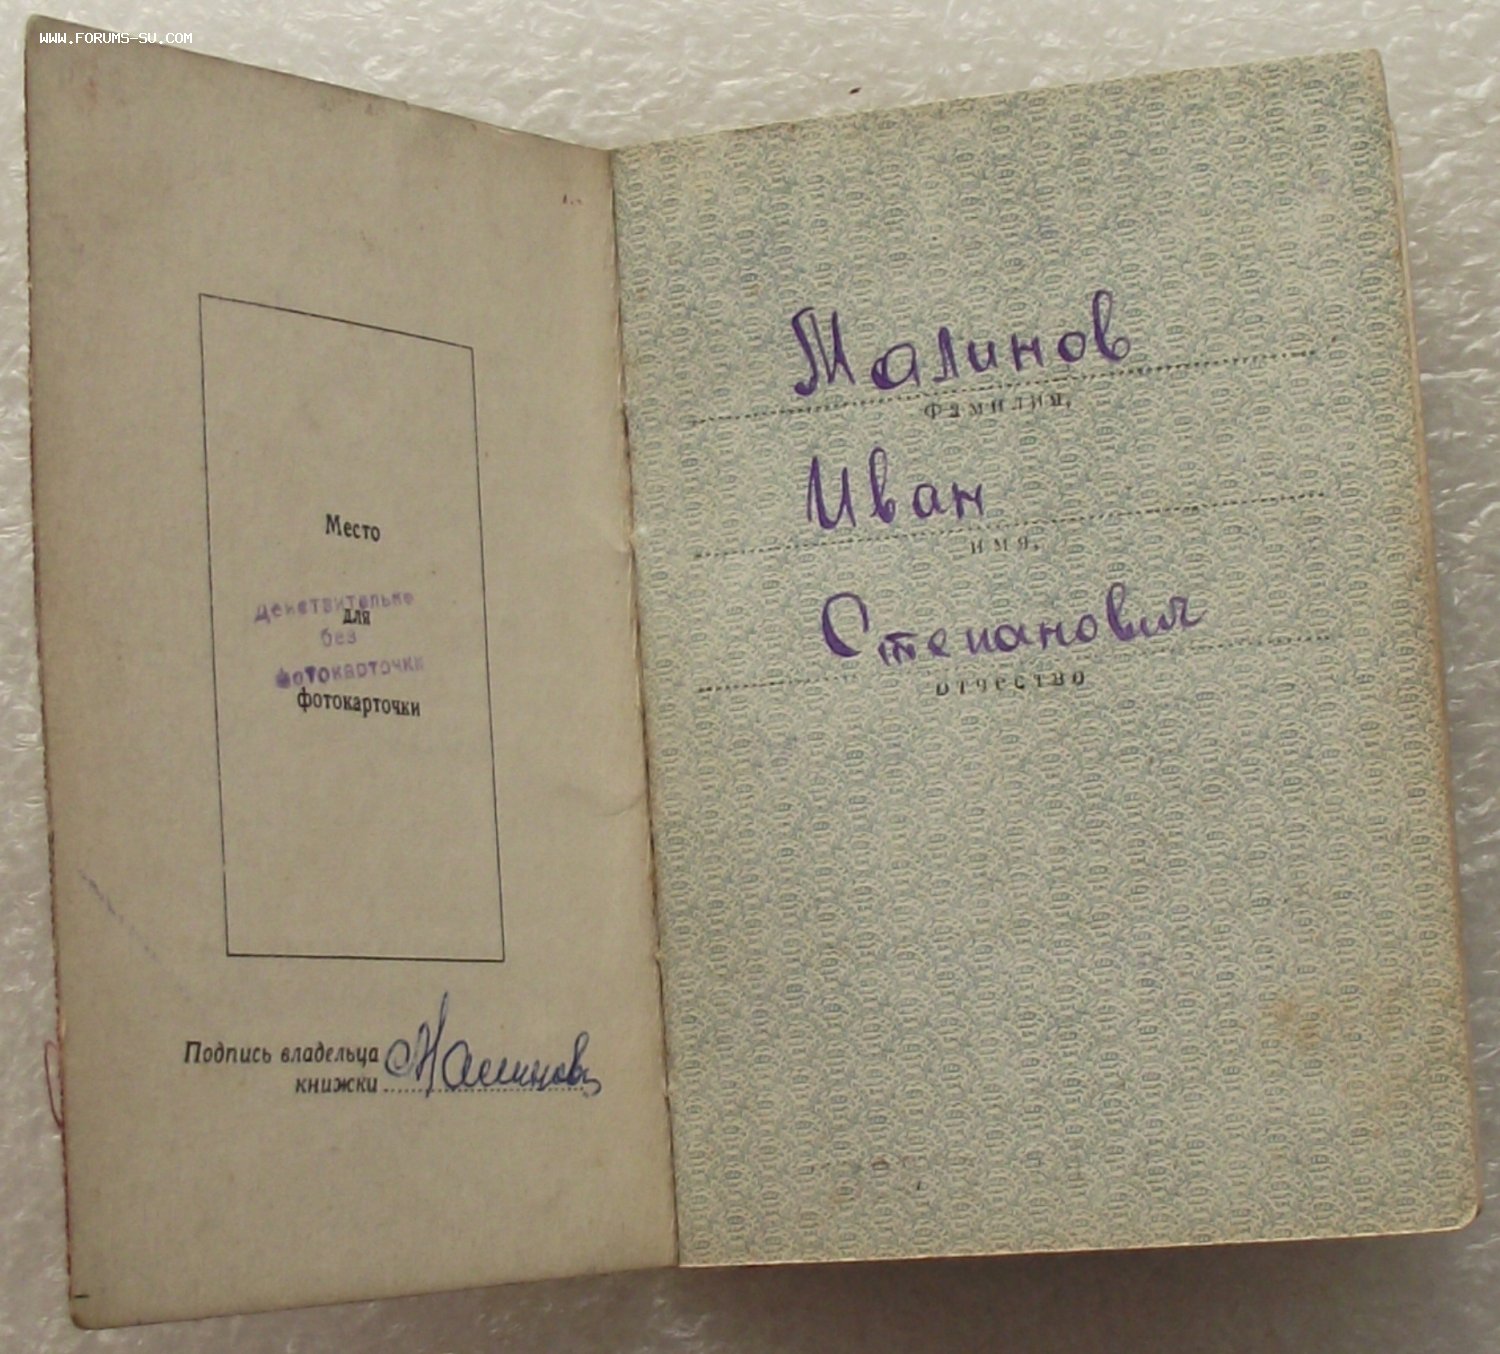 WWW.FORUMS-SU.COM
Место
действительно
для
без
фотокарточки
фотокарточки
Подпись владельца
книжки Малинов
Малинов
фамилия,
Иван
имя,
Степанович
отчество